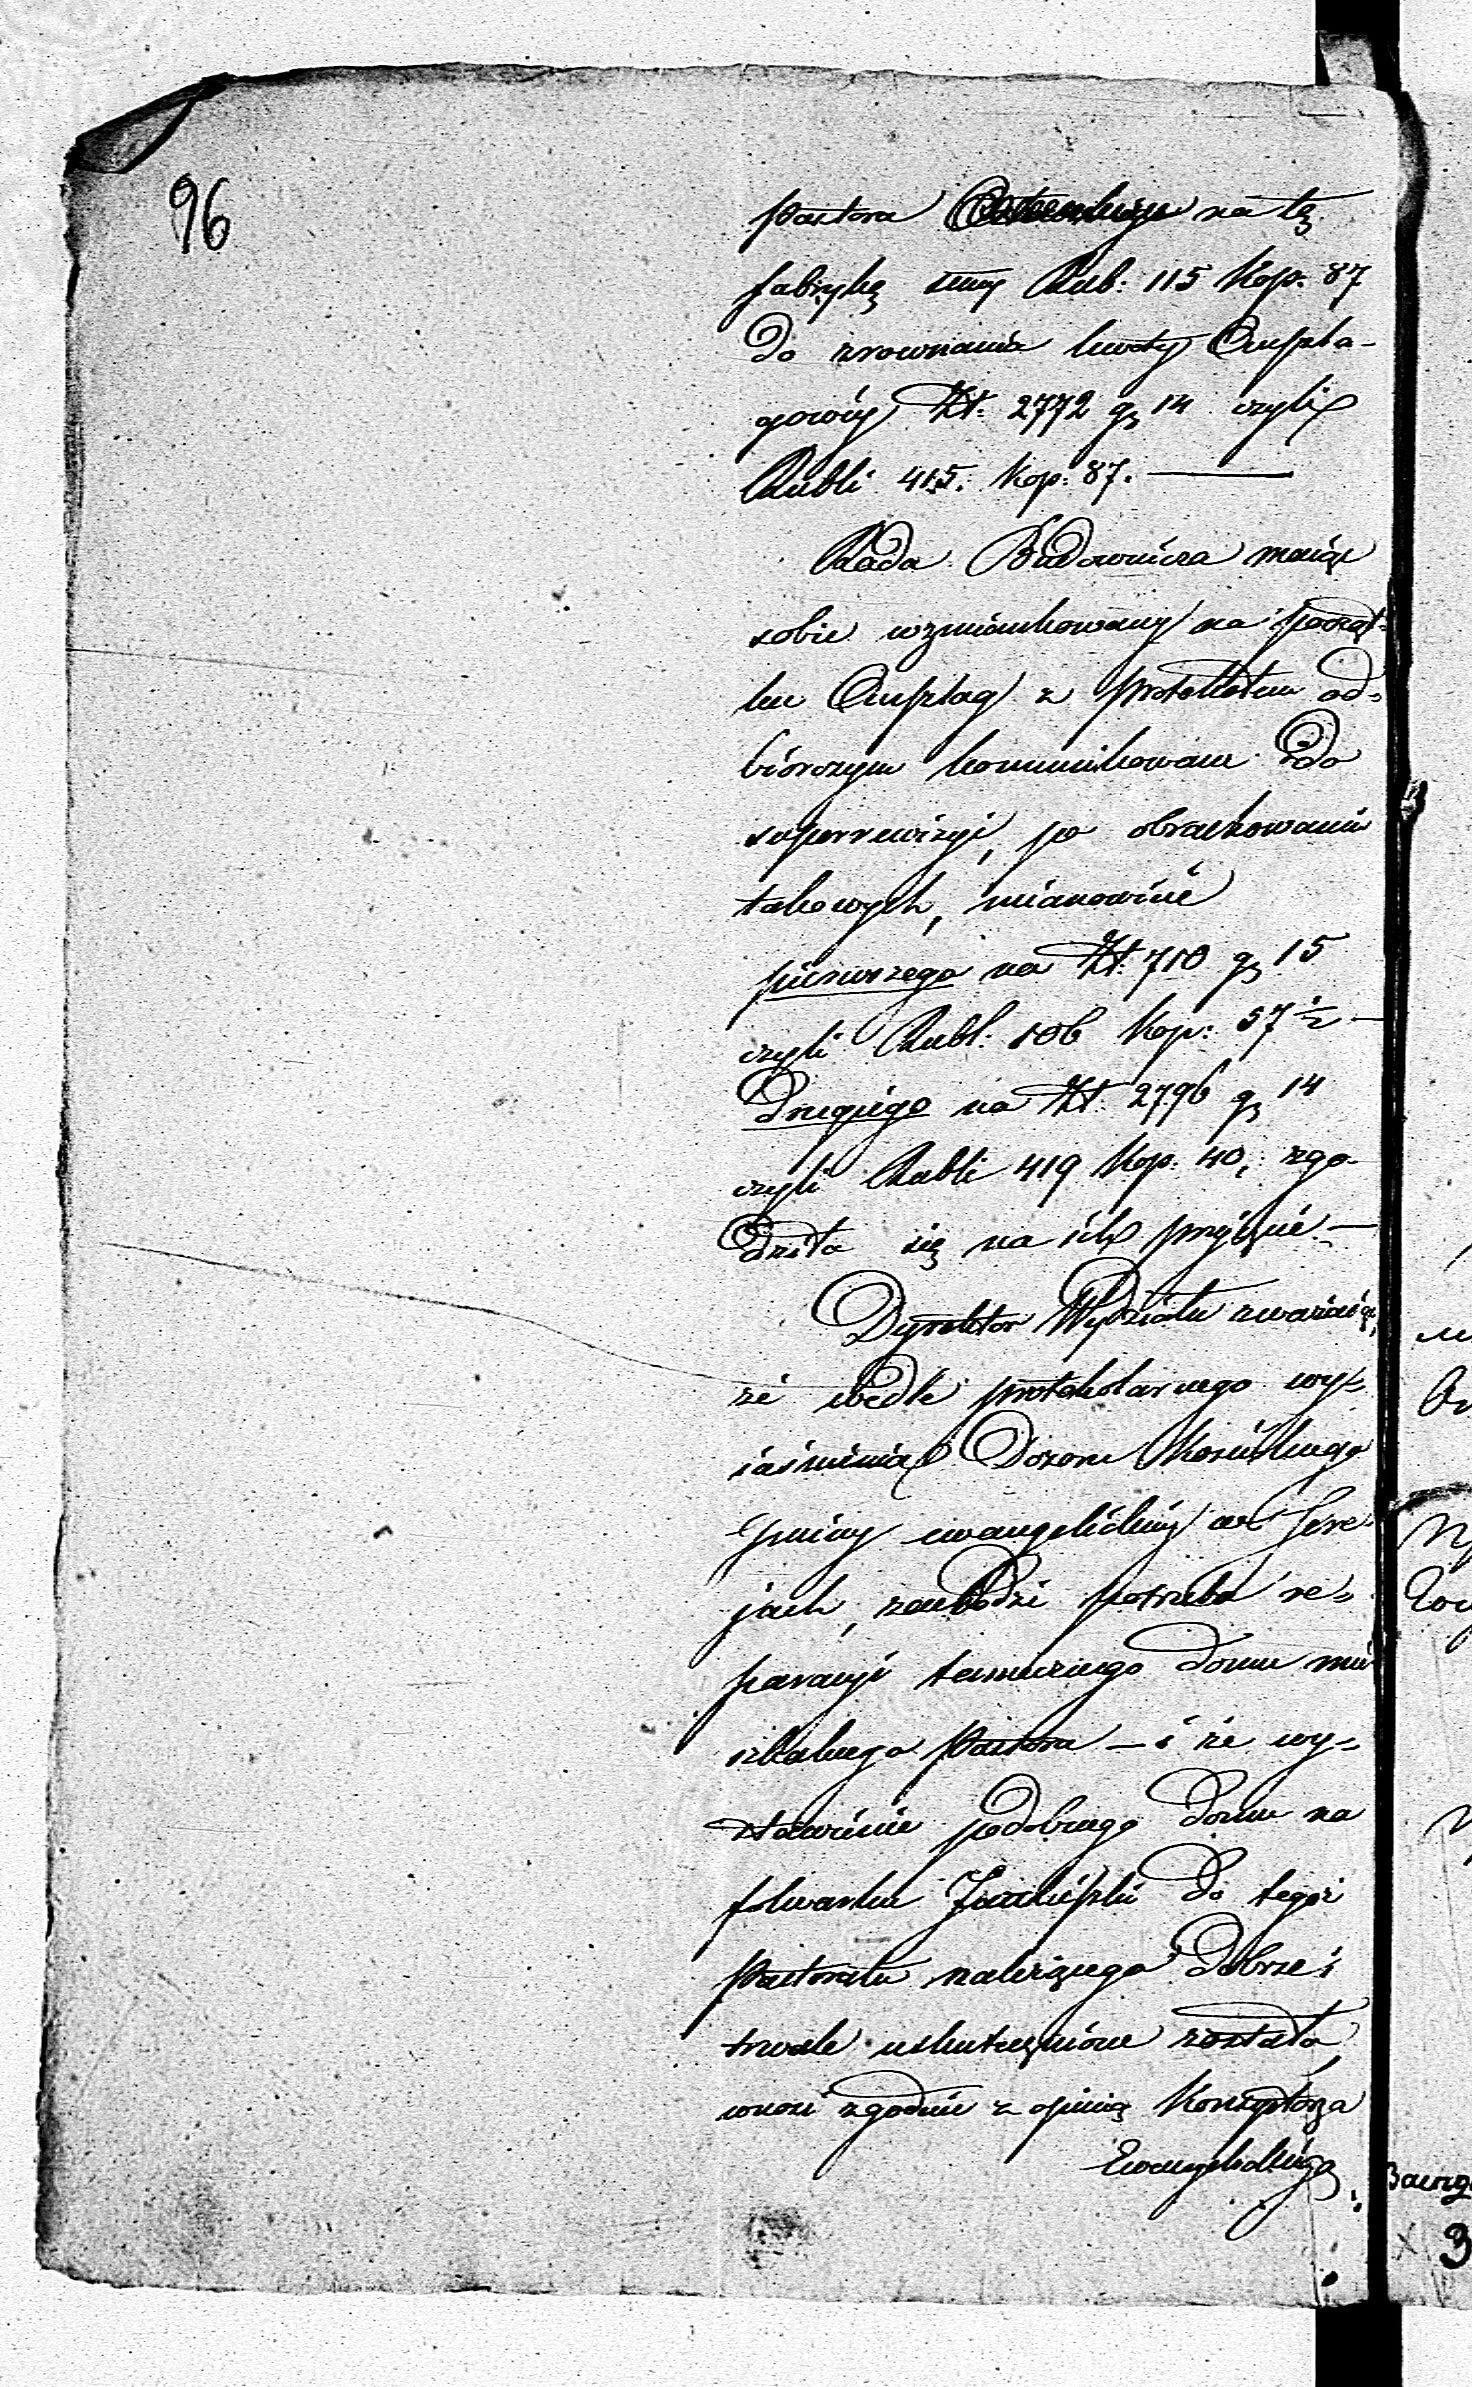 96
pastora na tę
fabrykę sumy Rub: 115 Kop: 87
do zrownania kwoty Anszla-
gowéy Zł: 2772 gr 14 czyli
Rubli 415. Kop: 87. —
Rada Budownicza maiąc
sobie wzmiankowany na począt-
ku Anszlag z protokołem od-
biorczym kommunikowane do
superrewizyi, po obrachowaniu
takowych, mianowicie
pierwszego na Zł: 710 gr 15
czyli Rubl: 106 Kop: 57 ½ —
Drugiego na Zł: 2796 gr 14
czyli Rubli 419 Kop: 40, zgo-
dziła się na ich przyięcie. —
Dyrektor Wydziału zważaiąc,
że wedle protokolarnego wy-
iaśnienia Dozoru Kościelnego
gminy ewangelickiéy w Sere-
jach, zachodzi potrzeba re-
paracyi tamecznego domu mie
szkalnego Pastora — i że wy-
stawienie podobnego domu na
folwarku do tegoż
Pastoratu należącego dobrze i
trwale uskutecznione zostało
wnosi zgodnie z opinią Konsystorza
Ewangelickiego